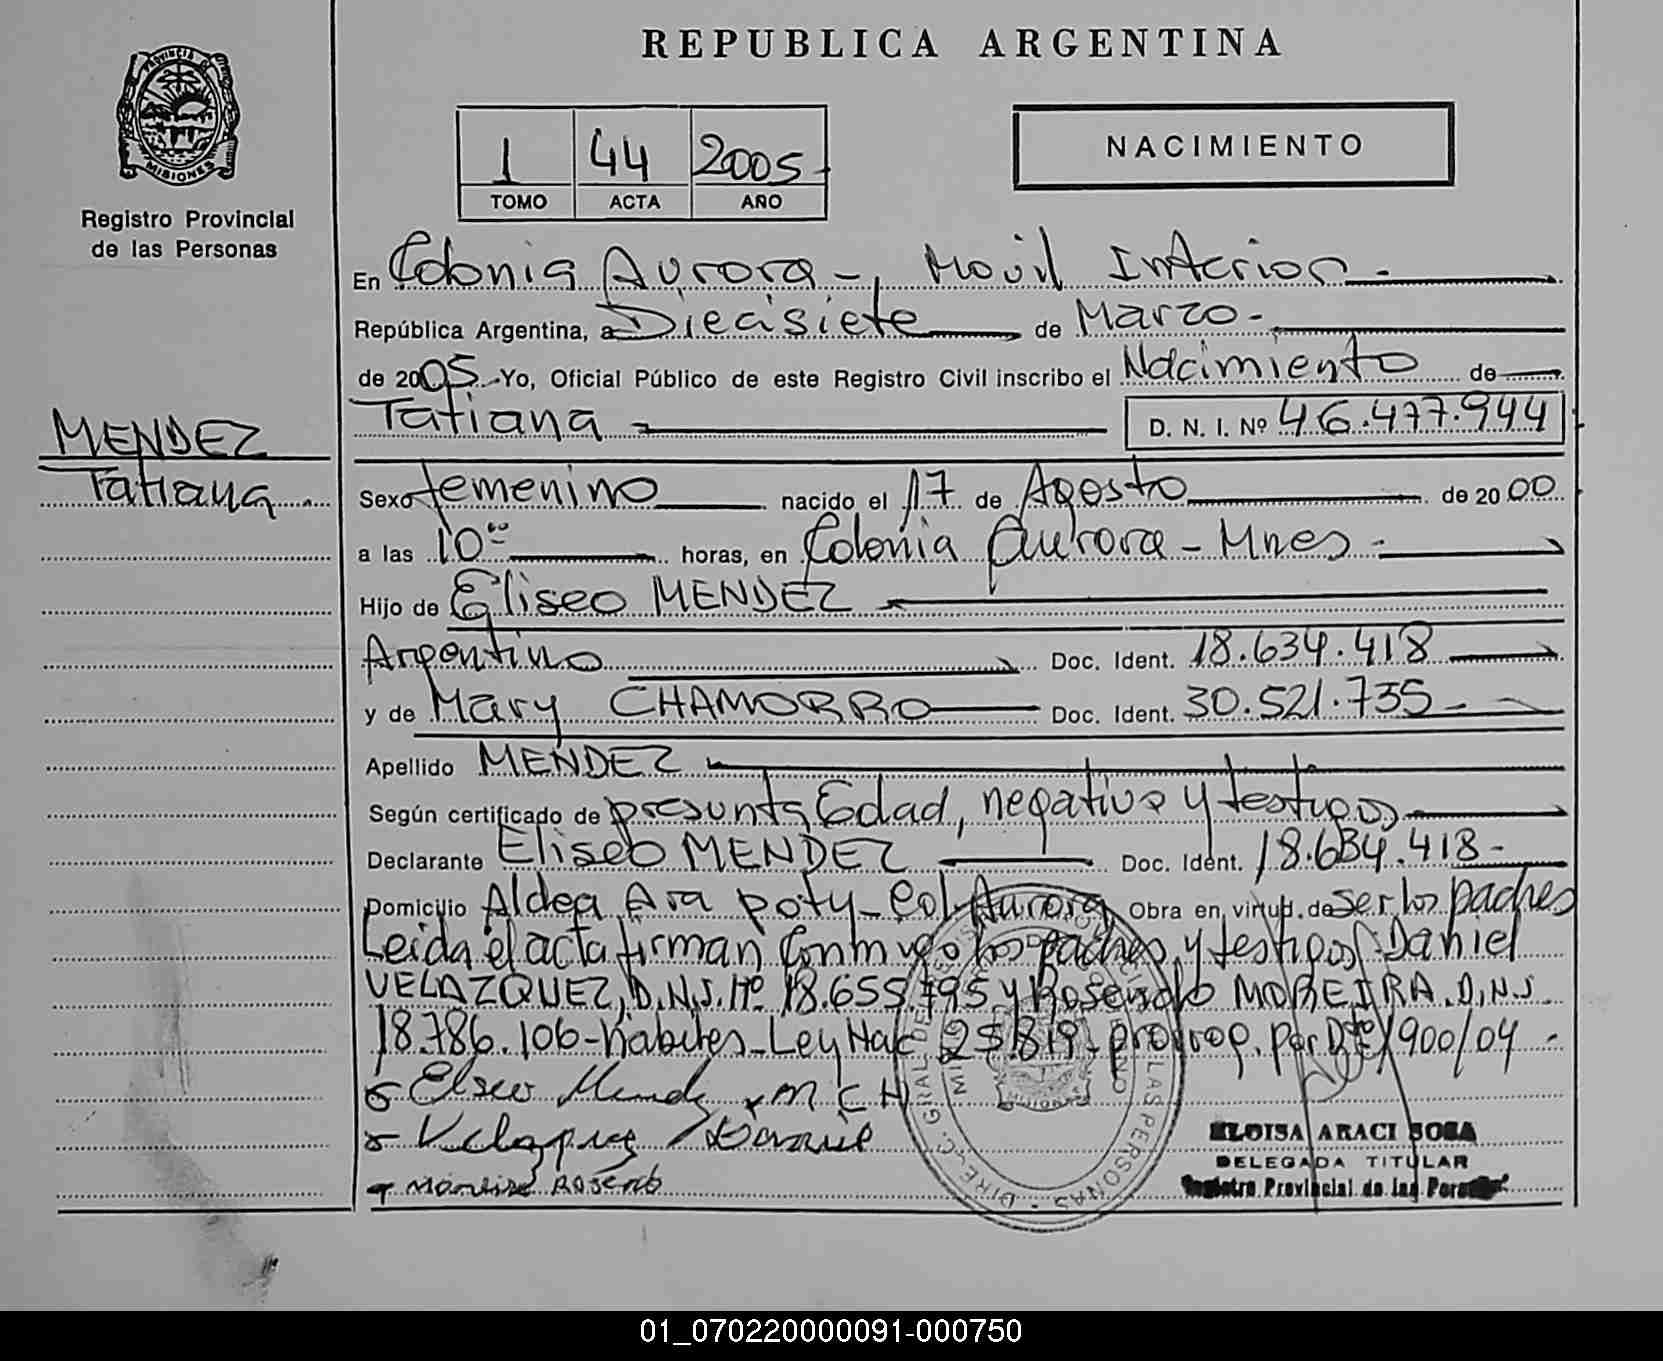 REPUBLICA ARGENTINA
PROVINCIA DE
MISIONES
Registro Provincial
de las Personas
1 44 2005
TOMO ACTA AÑO
NACIMIENTO
En Colonia Aurora -, Movil Interior -
República Argentina, a Diecisiete de Marzo -
de 2005 Yo, Oficial Público de este Registro Civil inscribo el Nacimiento de
Tatiana D. N. I. Nº 46.477.944
MENDEZ
Tatiana
Sexo femenino nacido el 17 de Agosto de 20 00
a las 10⁰⁰ horas, en Colonia Aurora - Mnes -
Hijo de Eliseo MENDEZ
Argentino Doc. Ident. 18.634.418
y de Mary CHAMORRO Doc. Ident. 30.521.735 -
Apellido MENDEZ
Según certificado de presunta Edad, negativo y testigos
Declarante Eliseo MENDEZ Doc. Ident. 18.634.418 -
Domicilio Aldea Ara poty - Col. Aurora Obra en virtud de ser los padres
Leida el acta firman Conmigo los padres y testigos Daniel
VELAZQUEZ, D.N.I. Nº 18.655.795 y Rosendo MOREIRA. D.N.I.
18.786.106 - habiles - Ley Nac 25.819 - prorrog. por Dto 1900/04 -
Eliseo Mendez M C H
Velazquez Daniel
Moreira Rosendo
ELOISA ARACI SOSA
DELEGADA TITULAR
Registro Provincial de las Personas
01_070220000091-000750